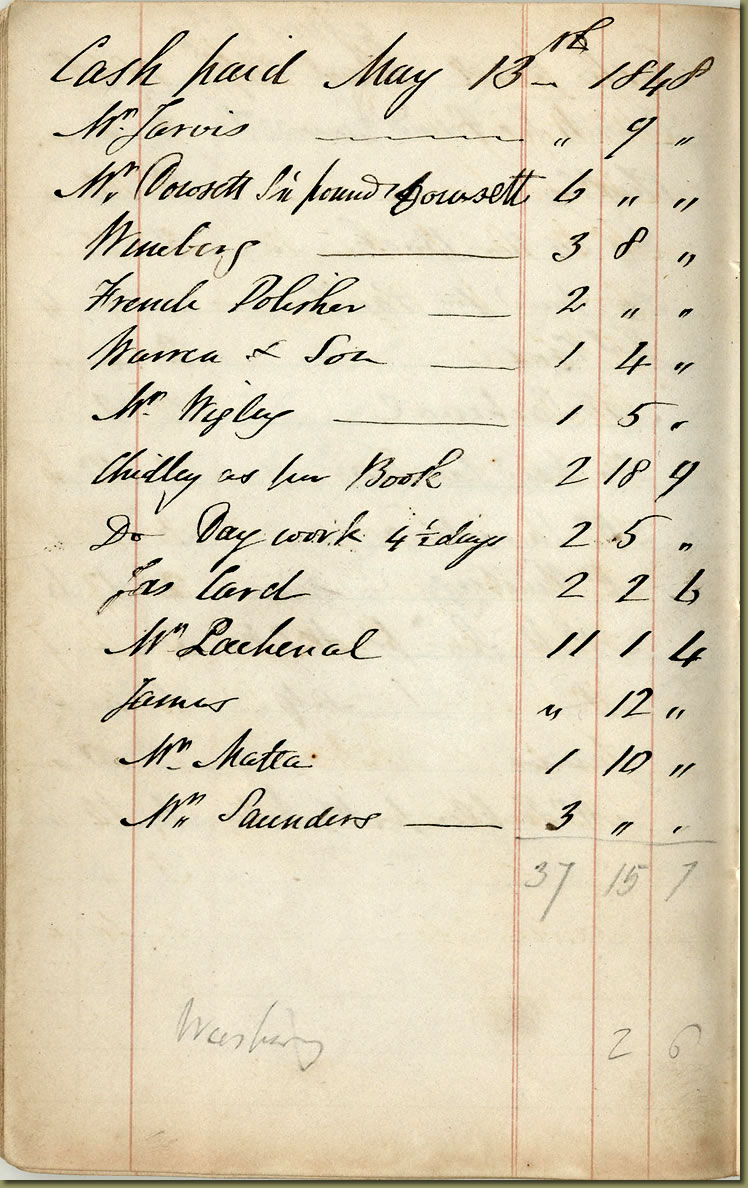 Cash paid May 13th 1848
Mr. Jarvis " 9 "
Mr. Dowsett Six pounds Dowsett 6 " "
Wineberg 3 8 "
French Polisher 2 " "
Warren & Son 1 4 "
Mr. Wigley 1 5 "
Chidley as per Book 2 18 9
Do Day work 4½ days 2 5 "
Jas Card 2 2 6
Mr Lachenal 11 1 4
James " 12 "
Mr. Matta 1 10 "
Mr. Saunders 3 " "
37 15 7
Washing 2 6